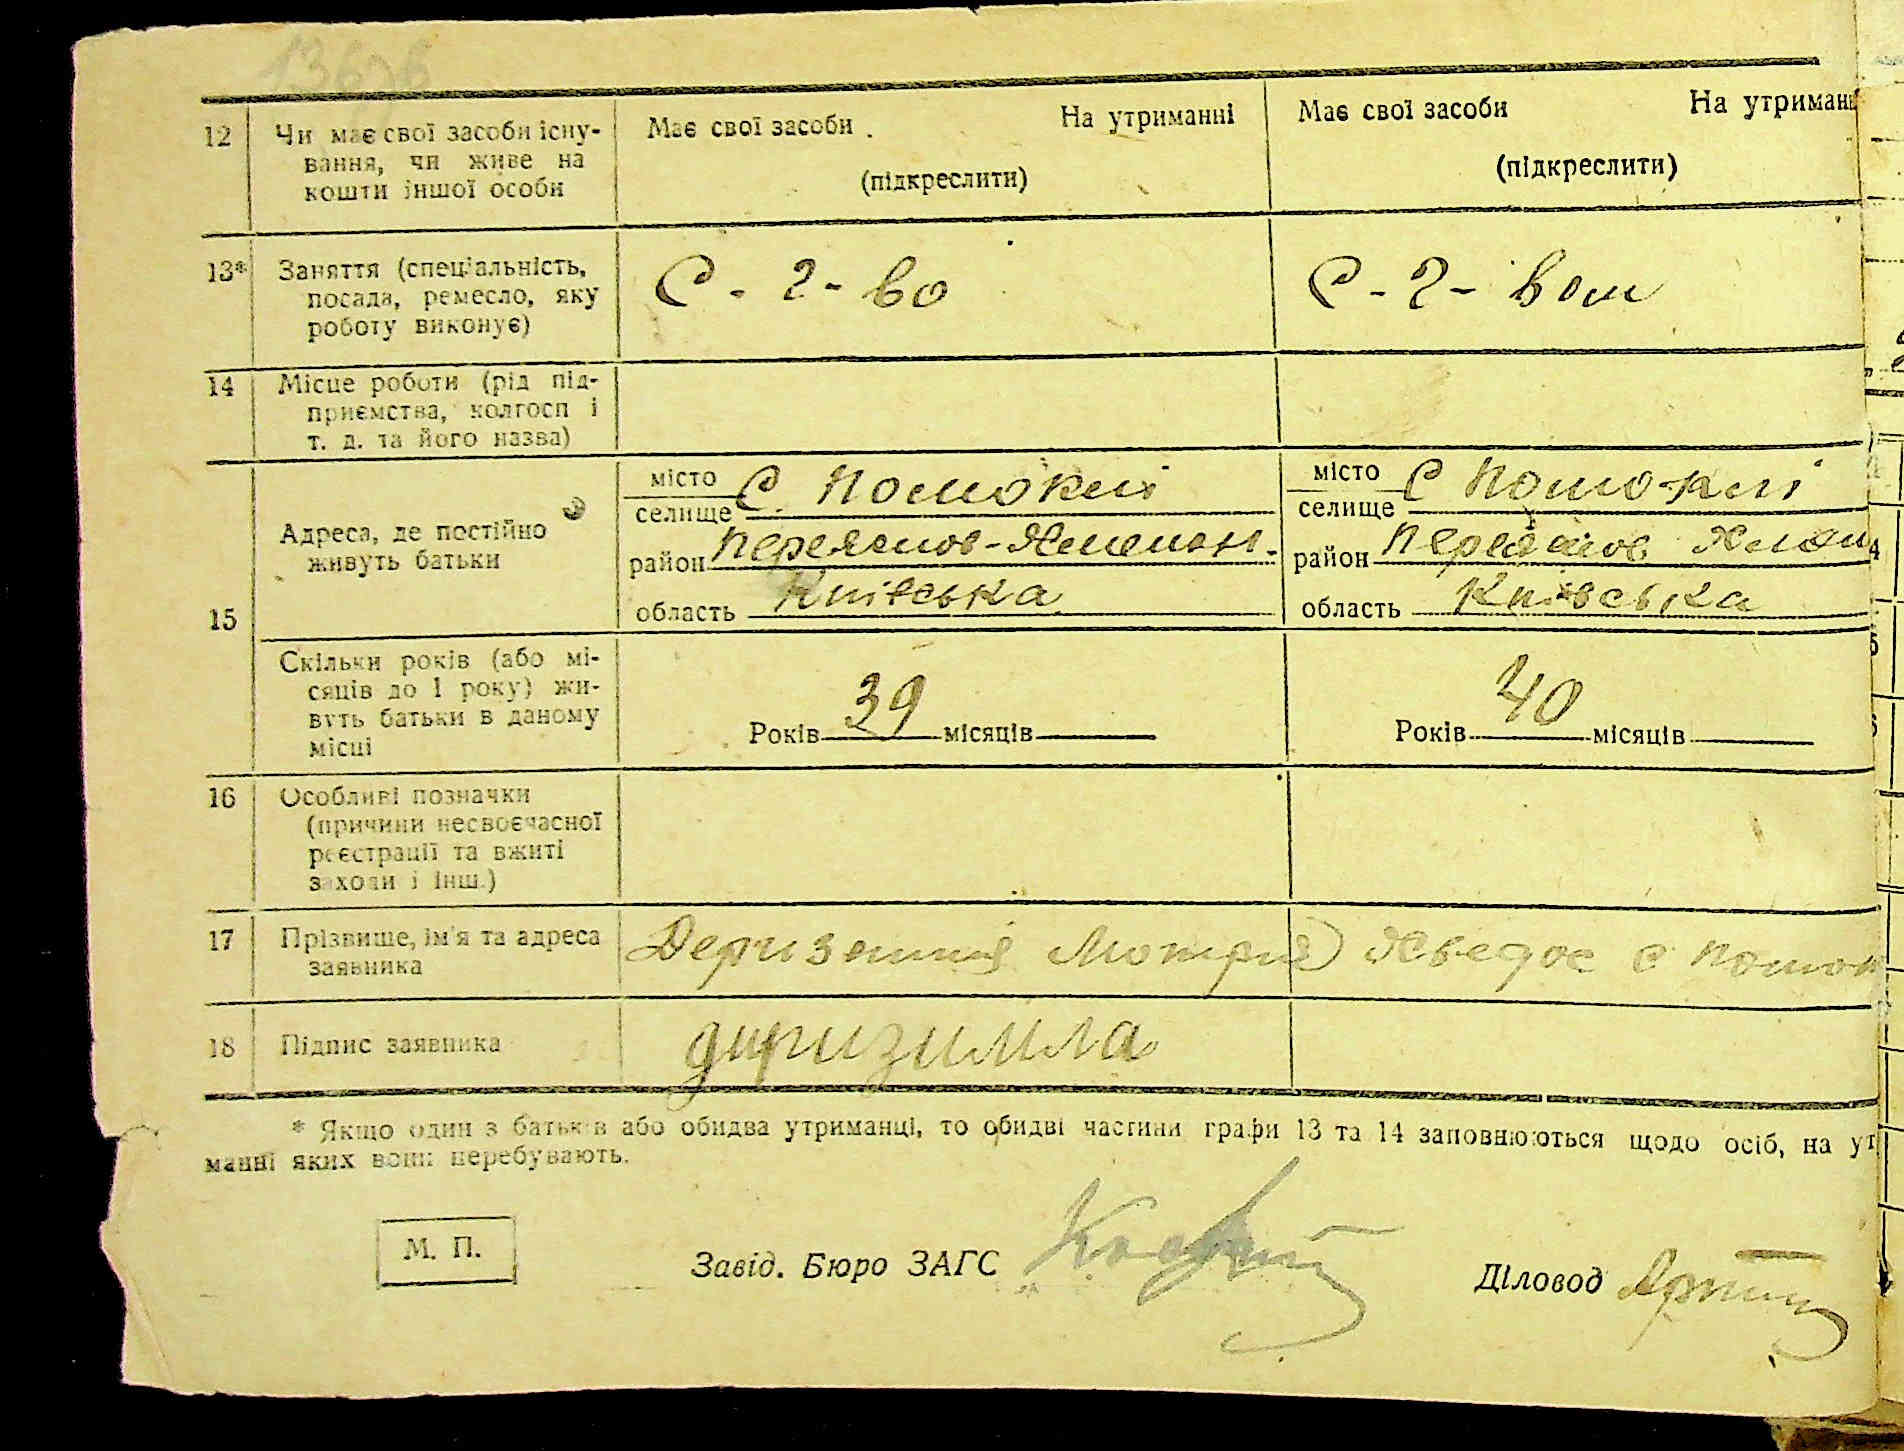 12 Чи має свої засоби існу- Має свої засоби На утриманні Має свої засоби На утриманн
вання, чи живе на
кошти іншої особи (підкреслити) (підкреслити)
13* Заняття (спеціальність,
посада, ремесло, яку С-г-во С-г-вом
роботу виконує)
14 Місце роботи (рід під-
приємства, колгосп і
т. д. та його назва)
місто С. Помоклі місто С Помоклі
селище селище
Адреса, де постійно
живуть батьки район Переяслов-Хмельн. район Переяслов Хмель
область Київська область Київська
15
Скільки років (або мі-
сяців до 1 року) жи-
вуть батьки в даному
місці Років 39 місяців Років 40 місяців
16 Особливі позначки
(причини несвоєчасної
реєстрації та вжиті
заходи і інш.)
17 Прізвище, ім'я та адреса Мотря с Помок
заявника
18 Підпис заявника
* Якщо один з батьків або обидва утриманці, то обидві частини графи 13 та 14 заповнюються щодо осіб, на ут
манні яких вони перебувають.
М. П.
Завід. Бюро ЗАГС Діловод